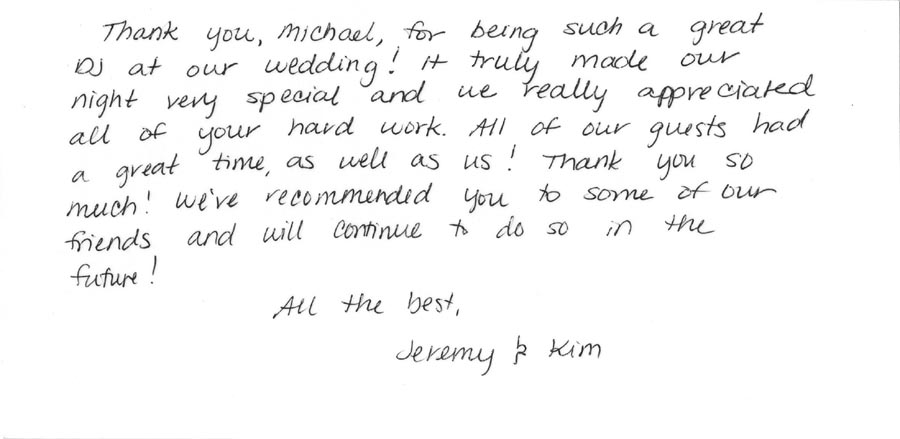 Thank you, Michael, for being such a great
DJ at our wedding! it truly made our
night very special and we really appreciated
all of your hard work. All of our guests had
a great time, as well as us! Thank you so
much! We've recommended you to some of our
friends and will continue to do so in the
future!
All the best,
Jeremy & Kim